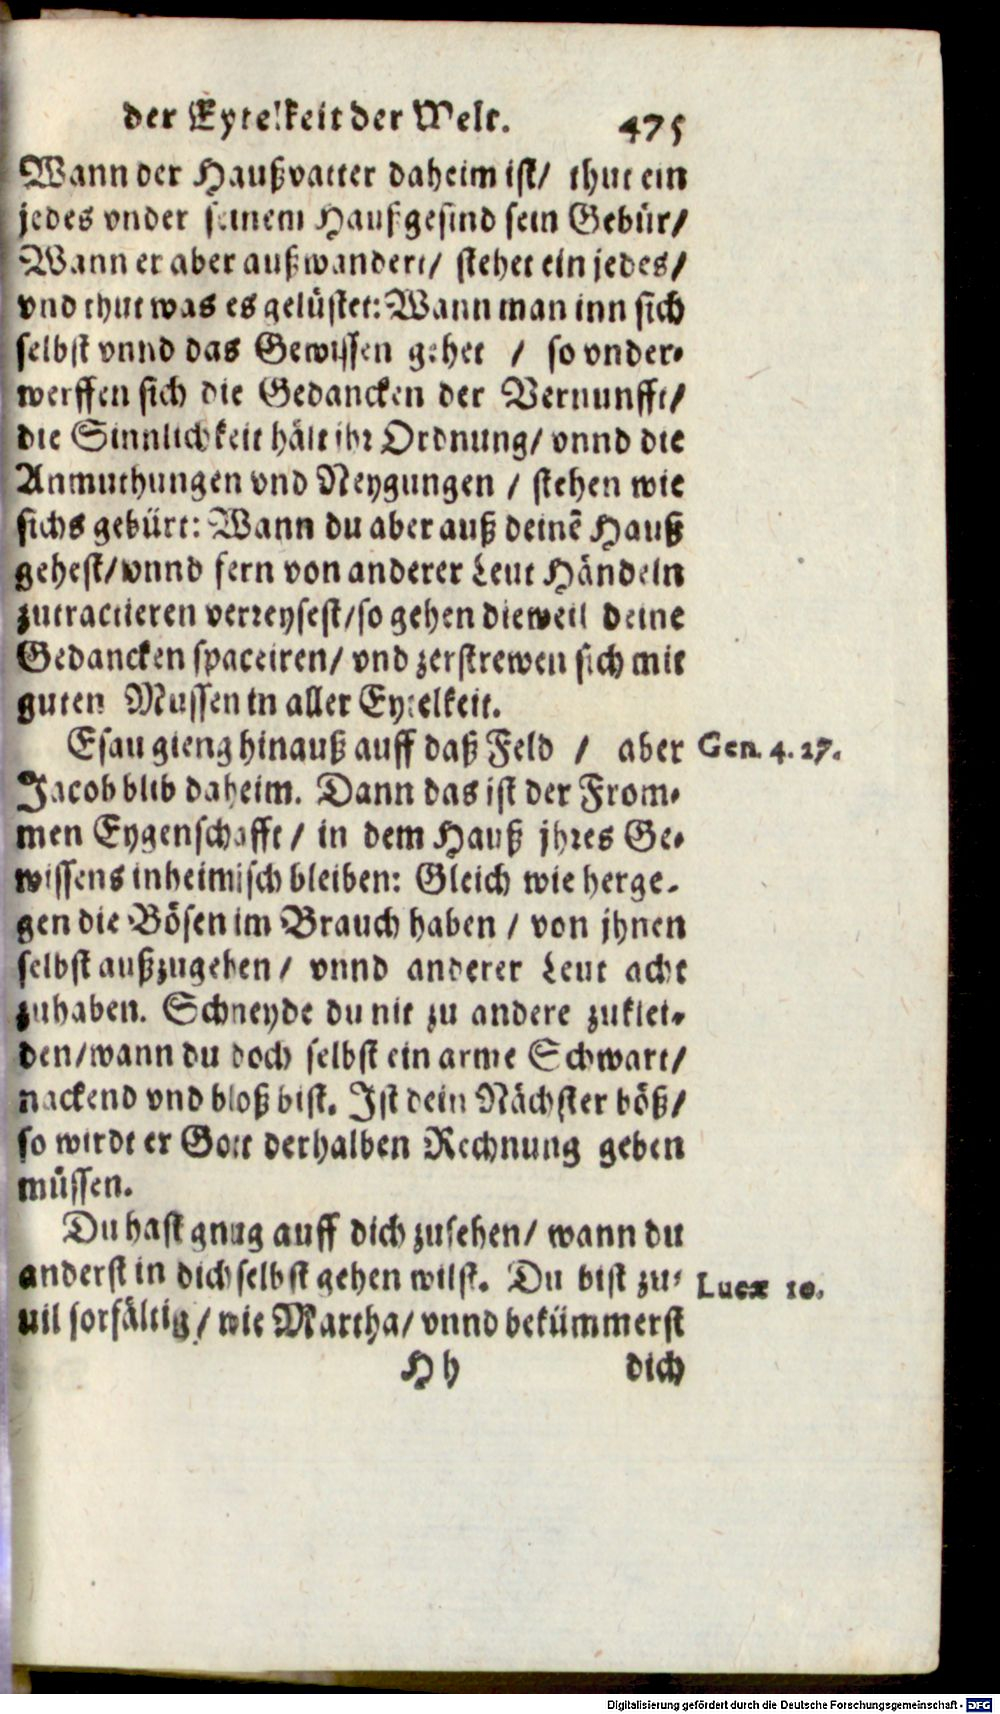 der Eytelkeit der Welt. 475
Wann der Haußvatter daheim ist/ thut ein
jedes vnder seinem Haußgesind sein Gebür/
Wann er aber außwandert/ stehet ein jedes/
vnd thut was es gelüstet: Wann man inn sich
selbst vnnd das Gewissen gehet / so vnder-
werffen sich die Gedancken der Vernunfft/
die Sinnlichkeit hält ihr Ordnung/ vnnd die
Anmuthungen vnd Neygungen / stehen wie
sichs gebürt: Wann du aber auß deinē Hauß
gehest/vnnd fern von anderer Leut Händeln
zutractieren verreysest/so gehen dieweil deine
Gedancken spaceiren/ vnd zerstrewen sich mit
guten Mussen in aller Eytelkeit.
Esau gieng hinauß auff daß Feld / aber Gen. 4. 27.
Jacob blib daheim. Dann das ist der From-
men Eygenschafft / in dem Hauß jhres Ge-
wissens inheimisch bleiben: Gleich wie herge-
gen die Bösen im Brauch haben / von jhnen
selbst außzugehen / vnnd anderer Leut acht
zuhaben. Schneyde du nit zu andere zuklei-
den/wann du doch selbst ein arme Schwart/
nackend vnd bloß bist. Ist dein Nächster böß/
so wirdt er Gott derhalben Rechnung geben
müssen.
Du hast gnug auff dich zusehen/ wann du
anderst in dich selbst gehen wilst. Du bist zu- Lucæ 10.
uil sorfältig / wie Martha/ vnnd bekümmerst
Hh dich
Digitalisierung gefördert durch die Deutsche Forschungsgemeinschaft - DFG